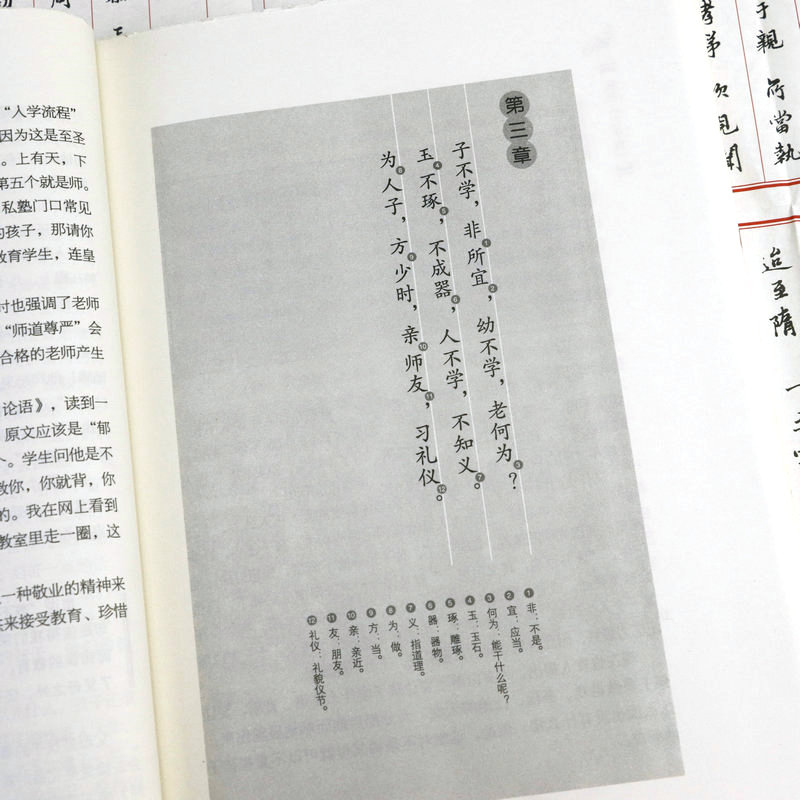 “人学流程”
因为这是至圣
。上有天，下
第五个就是师。
私塾门口常见
的孩子，那请你
教育学生，连皇
时也强调了老师
“师道尊严”会
合格的老师产生
论语》，读到一
原文应该是“郁
个。学生问他是不
教你，你就背，你
的。我在网上看到
教室里走一圈，这
一种敬业的精神来
来接受教育、珍惜
第三章
子不学，非①所宜②，幼不学，老何为③？
玉④不琢⑤，不成器⑥，人不学，不知义⑦。
为⑧人子，方⑨少时，亲⑩师友⑪，习礼仪⑫。
①非：不是。
②宜：应当。
③何为：能干什么呢？
④玉：玉石。
⑤琢：雕琢。
⑥器：器物。
⑦义：指道理。
⑧为：做。
⑨方：当。
⑩亲：亲近。
⑪友：朋友。
⑫礼仪：礼貌仪节。
于親
所當執
孝弟
次見聞
迨至隋